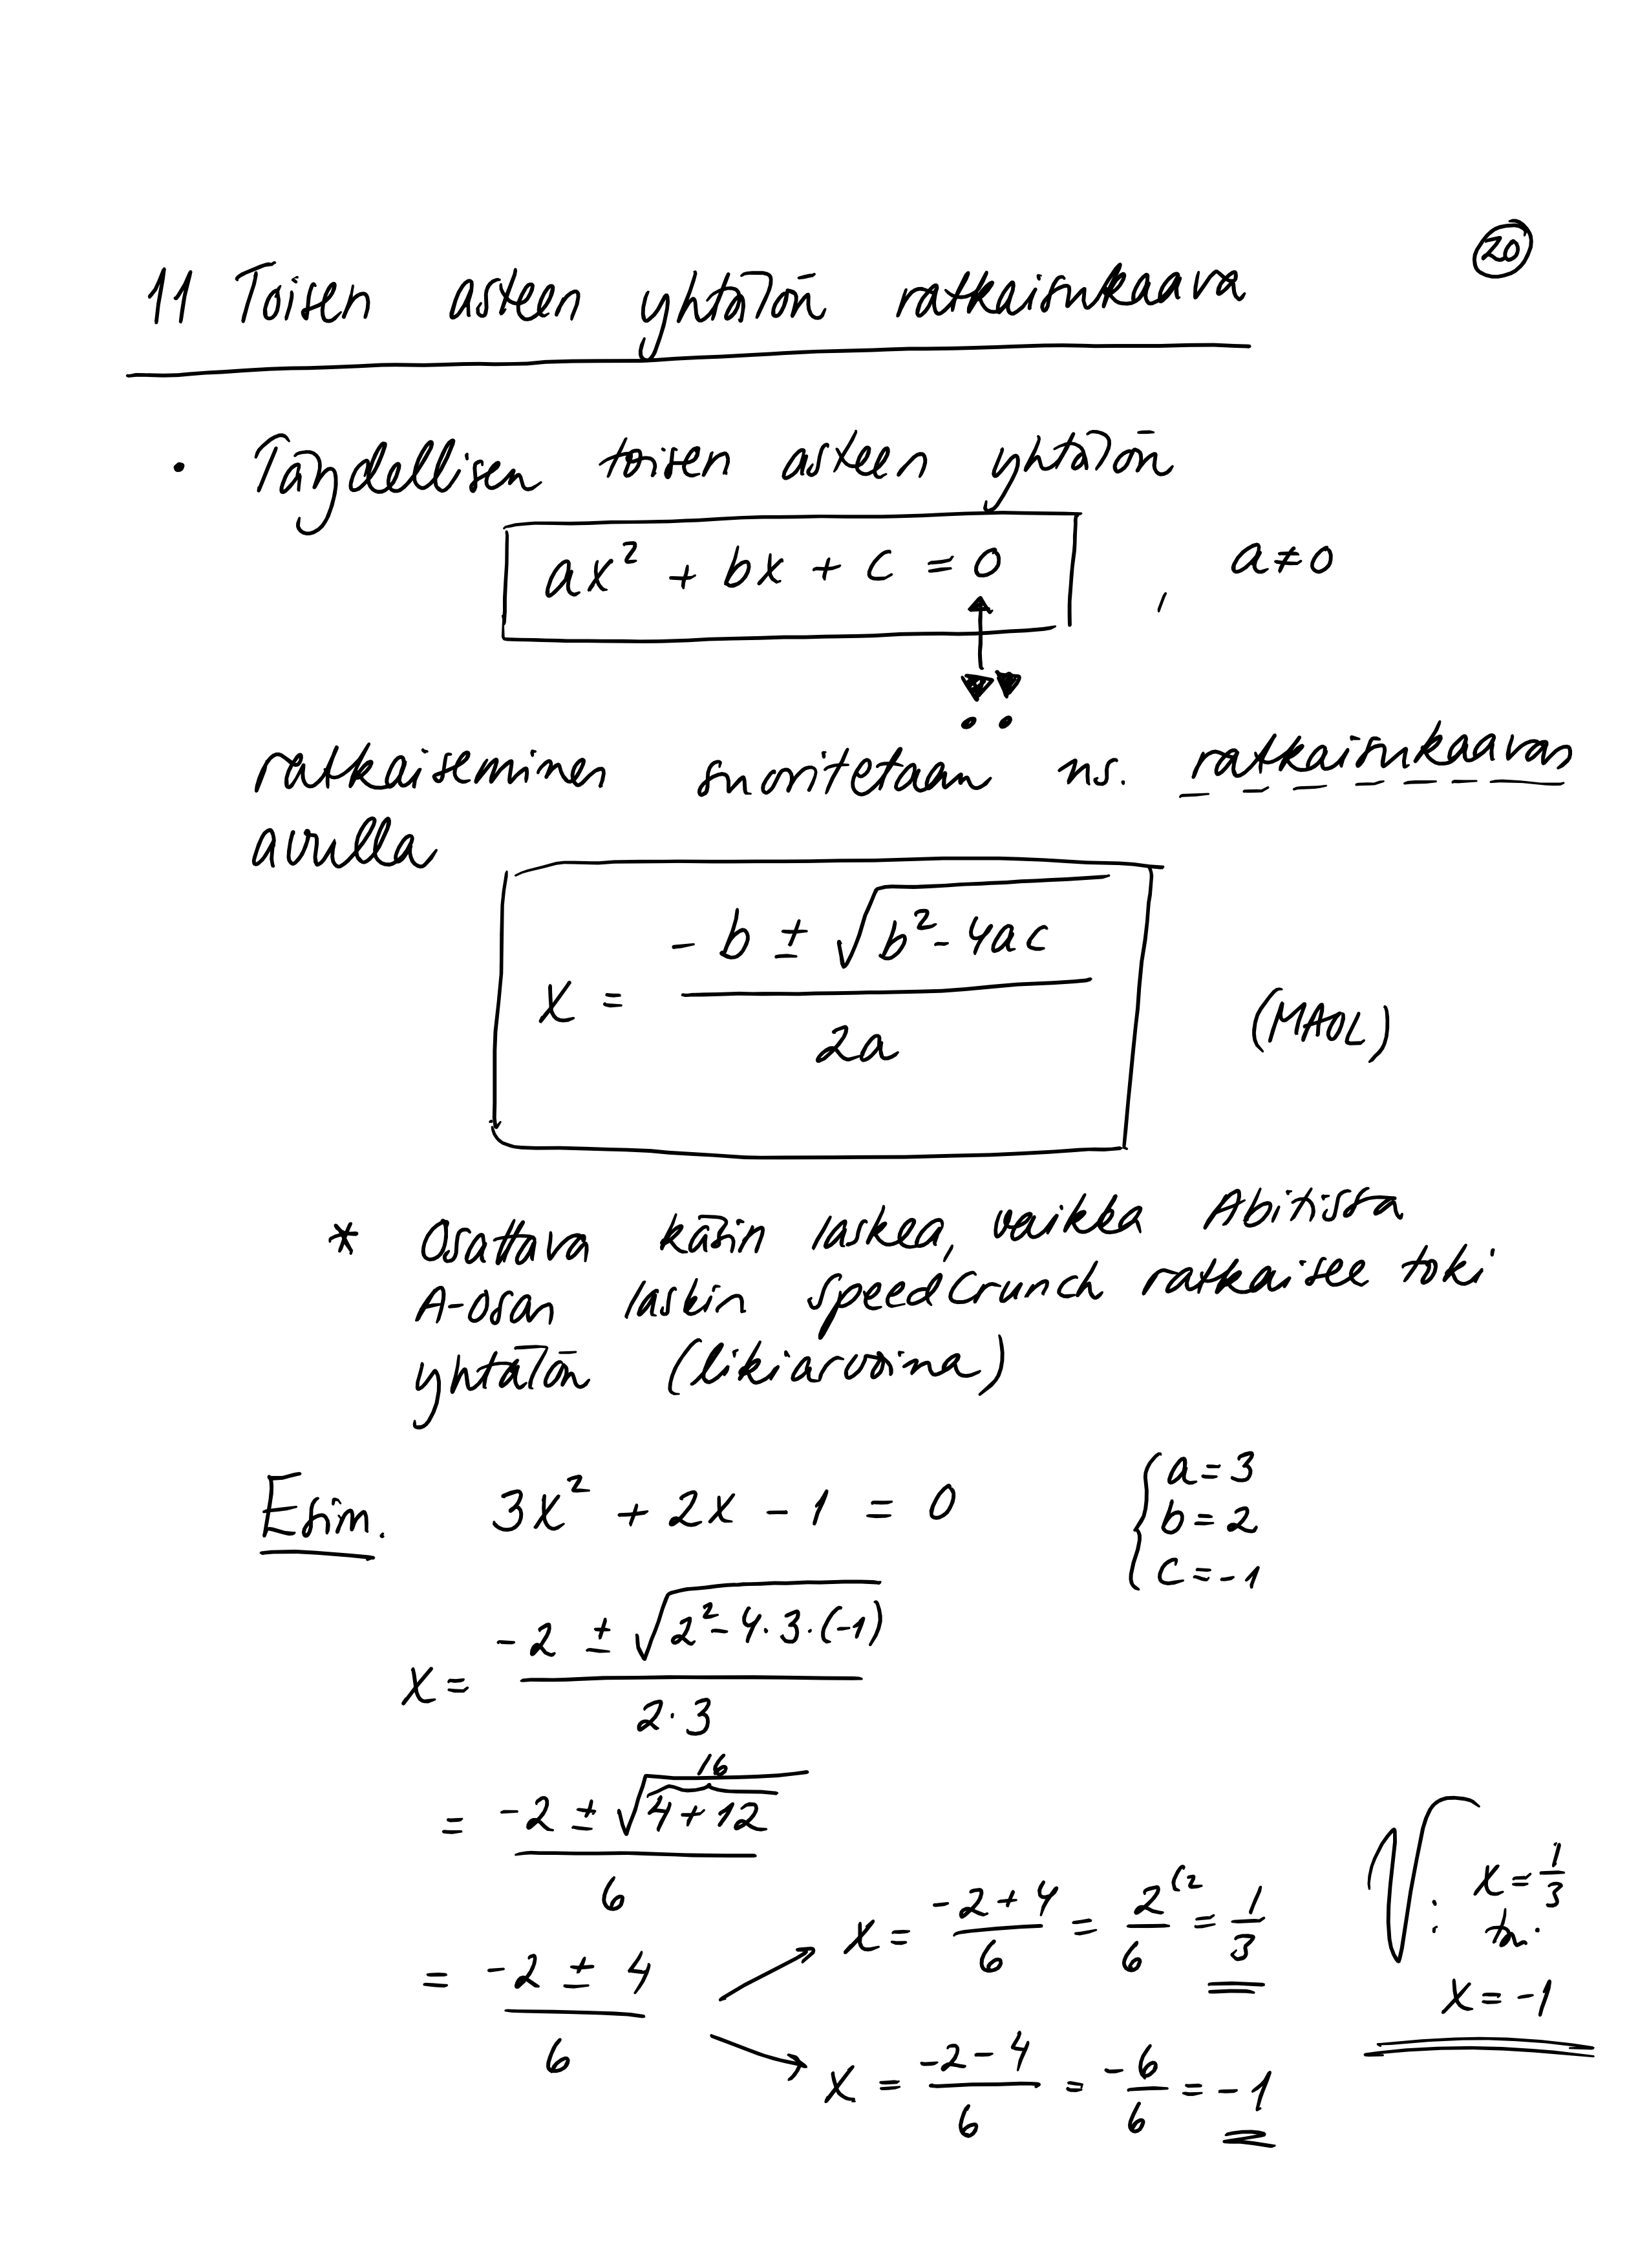 20
11 Toisen asteen yhtälön ratkaisukaava
• Täydellisen toisen asteen yhtälön
ax² + bx + c = 0 , a ≠ 0
!!
ratkaiseminen suoritetaan ns. ratkaisukaavan
avulla
x = (-b ± √(b² - 4ac)) / 2a (MAOL)
* Osattava käsin laskea, vaikka Abitissa
A-osan laskin SpeedCrunch ratkaisee toki
yhtälön (likiarvoina)
Esim. 3x² + 2x - 1 = 0 { a = 3
b = 2
c = -1
x = (-2 ± √(2² - 4·3·(-1))) / (2·3)
16
= (-2 ± √(4 + 12)) / 6
= (-2 ± 4) / 6
x = (-2 + 4) / 6 = 2⁽² / 6 = 1/3
x = (-2 - 4) / 6 = -6/6 = -1
V: x = 1/3
tai
x = -1